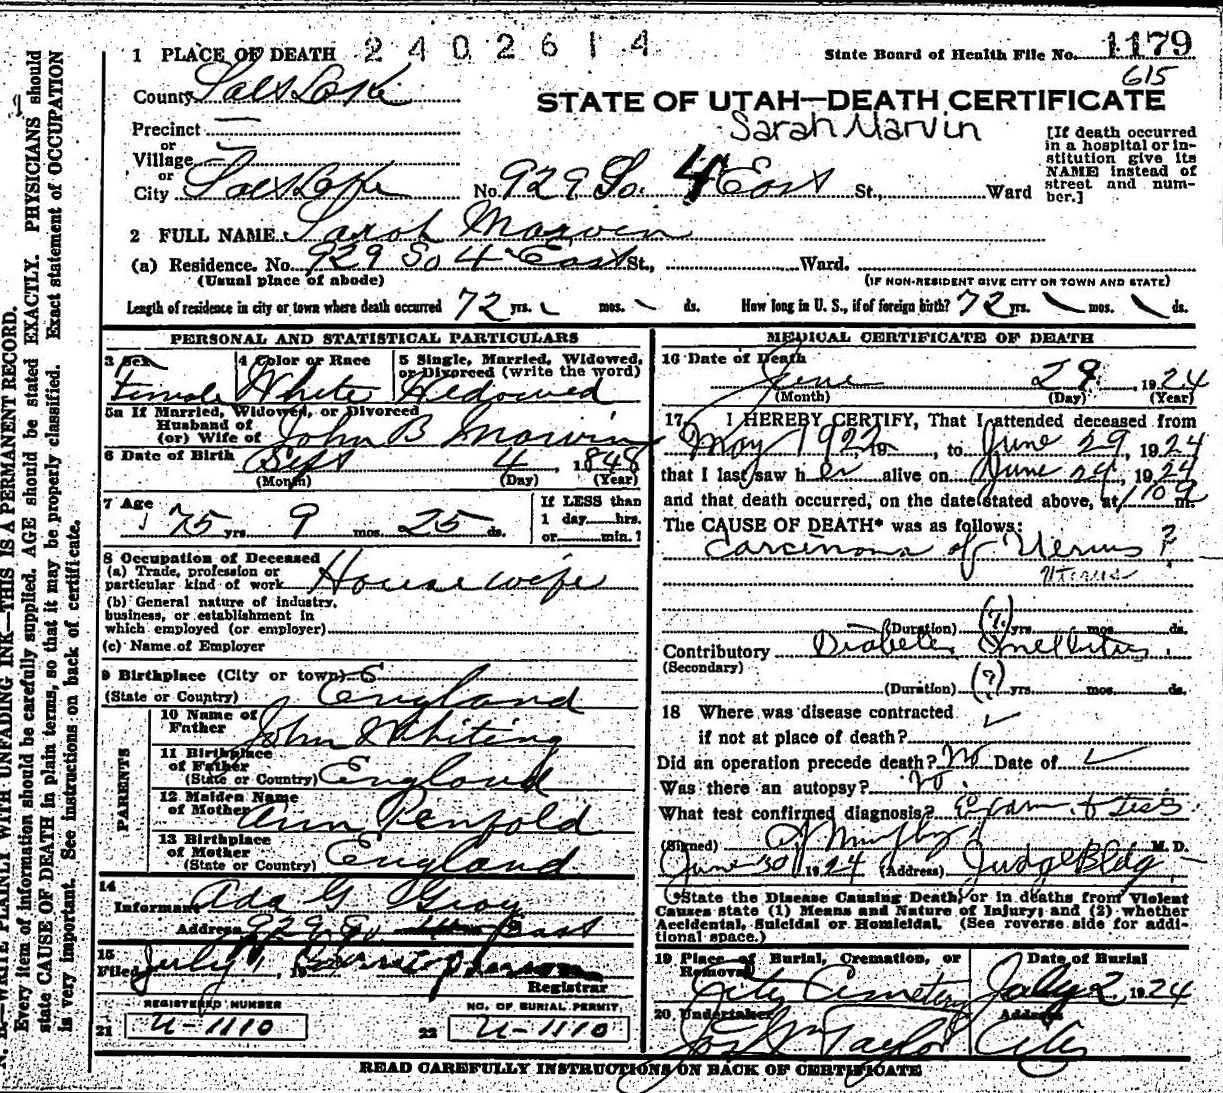 1 PLACE OF DEATH 2402614 State Board of Health File No. 1179
615
County Salt Lake STATE OF UTAH—DEATH CERTIFICATE
Sarah Marvin
Precinct —
or
Village —
or
City Salt Lake No. 929 So. 4 East St., Ward
[If death occurred
in a hospital or in-
stitution give its
NAME instead of
street and num-
ber.]
2 FULL NAME Sarah Marvin
(a) Residence. No. 929 So 4 East St., Ward.
(Usual place of abode) (IF NON-RESIDENT GIVE CITY OR TOWN AND STATE)
Length of residence in city or town where death occurred 72 yrs. mos. ds. How long in U. S., if of foreign birth? 72 yrs. mos. ds.
PERSONAL AND STATISTICAL PARTICULARS
3 Sex 4 Color or Race 5 Single, Married, Widowed,
or Divorced (write the word)
Female White Widowed
5a If Married, Widowed, or Divorced
Husband of
(or) Wife of John B Marvin
6 Date of Birth Sept 4, 1848
(Month) (Day) (Year)
7 Age If LESS than
75 yrs. 9 mos. 25 ds. 1 day hrs.
or min.?
8 Occupation of Deceased
(a) Trade, profession or
particular kind of work Housewife
(b) General nature of industry,
business, or establishment in
which employed (or employer)
(c) Name of Employer
9 Birthplace (City or town)
(State or Country) England
PARENTS
10 Name of
Father John Whiting
11 Birthplace
of Father
(State or Country) England
12 Maiden Name
of Mother Ann Penfold
13 Birthplace
of Mother
(State or Country) England
14
Informant Ada G Gray
Address 929 So 4 East
15
Filed July 1, 19
Registrar
REGISTERED NUMBER NO. OF BURIAL PERMIT
21 U-1110 22 U-1110
MEDICAL CERTIFICATE OF DEATH
16 Date of Death
June 29, 1924
(Month) (Day) (Year)
17 I HEREBY CERTIFY, That I attended deceased from
May 1922 19, to June 29, 1924
that I last saw her alive on June 24, 1924
and that death occurred, on the date stated above, at m.
The CAUSE OF DEATH* was as follows:
Carcinoma of Uterus ?
Uterus
(Duration) (?) yrs. mos. ds.
Contributory Diabetes Mellitus.
(Secondary)
(Duration) (?) yrs. mos. ds.
18 Where was disease contracted
if not at place of death?
Did an operation precede death? No Date of
Was there an autopsy? No.
What test confirmed diagnosis? Exam. & Tests
(Signed) Murphy M. D.
June 30 1924 (Address) Judge Bldg
*State the Disease Causing Death, or in deaths from Violent
Causes state (1) Means and Nature of Injury; and (2) whether
Accidental, Suicidal or Homicidal. (See reverse side for addi-
tional space.)
19 Place of Burial, Cremation, or Date of Burial
Removal
City Cemetery July 2 1924
20 Undertaker Address
Jos Wm Taylor City
READ CAREFULLY INSTRUCTIONS ON BACK OF CERTIFICATE
N. B.—WRITE PLAINLY WITH UNFADING INK—THIS IS A PERMANENT RECORD.
Every item of information should be carefully supplied. AGE should be stated EXACTLY. PHYSICIANS should
state CAUSE OF DEATH in plain terms, so that it may be properly classified. Exact statement of OCCUPATION
is very important. See instructions on back of certificate.